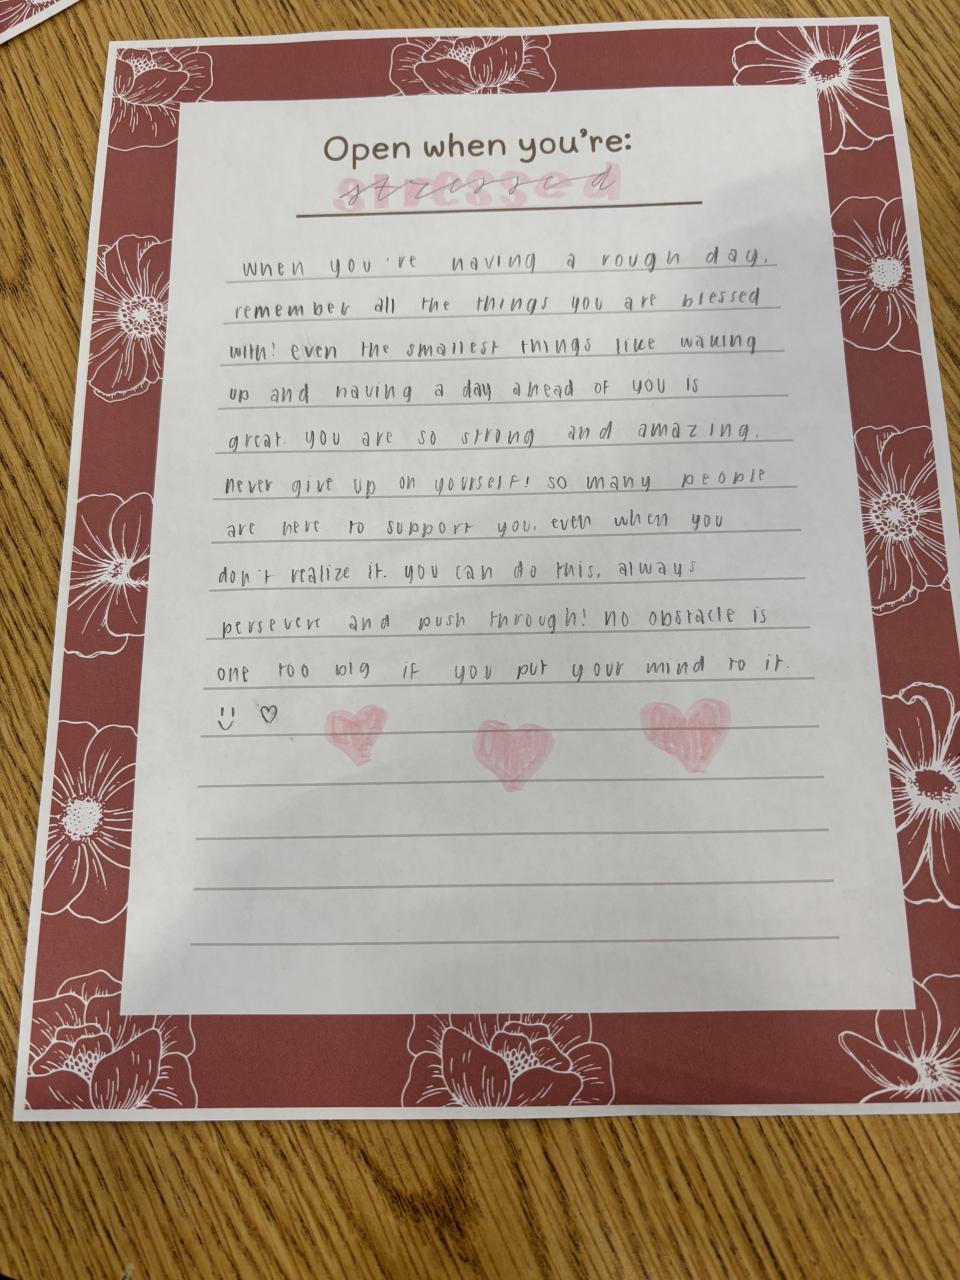 Open when you're:
stressed
when you're having a rough day,
remember all the things you are blessed
with! even the smallest things like waking
up and having a day ahead of you is
great. you are so strong and amazing.
never give up on yourself! so many people
are here to support you, even when you
don't realize it. you can do this, always
persevere and push through! no obstacle is
one too big if you put your mind to it.
:) ♡